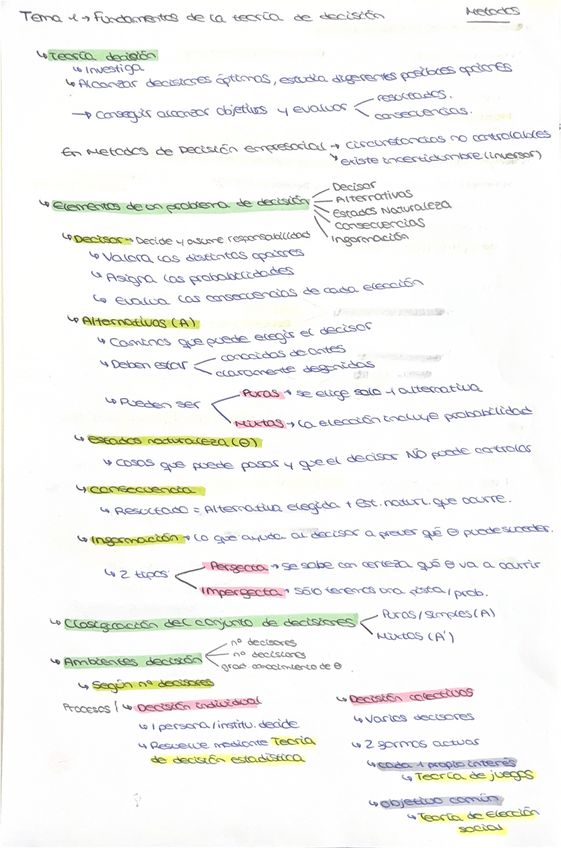 Tema 1 → Fundamentos de la teoría de decisión
Metodos
↳ Teoría decisión
↳ Investiga
↳ Alcanzar decisiones óptimas, estudia diferentes posibles opciones
→ Conseguir alcanzar objetivos y evaluar
resultados.
consecuencias.
En Metodos de Decisión empresarial → circunstancias no controlables
↳ existe incertidumbre (inversor)
↳ Elementos de un problema de decisión
Decisor
Alternativas
Estados Naturaleza
consecuencias
Información
↳ Decisor → Decide y asume responsabilidad
↳ Valora las distintas opciones
↳ Asigna las probabilidades
↳ Evalua las consecuencias de cada elección
↳ Alternativas (A)
↳ Caminos que puede elegir el decisor
↳ Deben estar
conocidas de antes
claramente definidas
↳ Pueden ser
Puras → se elige solo 1 alternativa
Mixtas → La elección incluye probabilidad
↳ Estados naturaleza (Θ)
↳ Cosas que puede pasar y que el decisor NO puede controlar
↳ consecuencia
↳ Resultado = Alternativa elegida + Est. natur. que ocurre.
↳ Información → Lo que ayuda al decisor a prever qué Θ puede suceder.
↳ 2 tipos
Perfecta → se sabe con certeza qué Θ va a ocurrir
Imperfecta → sólo tenemos una pista/prob.
↳ Clasificación del conjunto de decisiones
Puras/simples (A)
Mixtas (A')
↳ Ambientes decisión
nº decisores
nº decisiones
grad. conocimiento de Θ
↳ Según nº decisores
Procesos / ↳ Decisión individual
↳ 1 persona/institu. decide
↳ Resuelve mediante Teoría
de decisión estadística
↳ Decisión colectivas
↳ Varios decisores
↳ 2 formas actuar
↳ cada 1 propio interés
↳ Teoría de juegos
↳ objetivo común
↳ Teoría de Elección
social